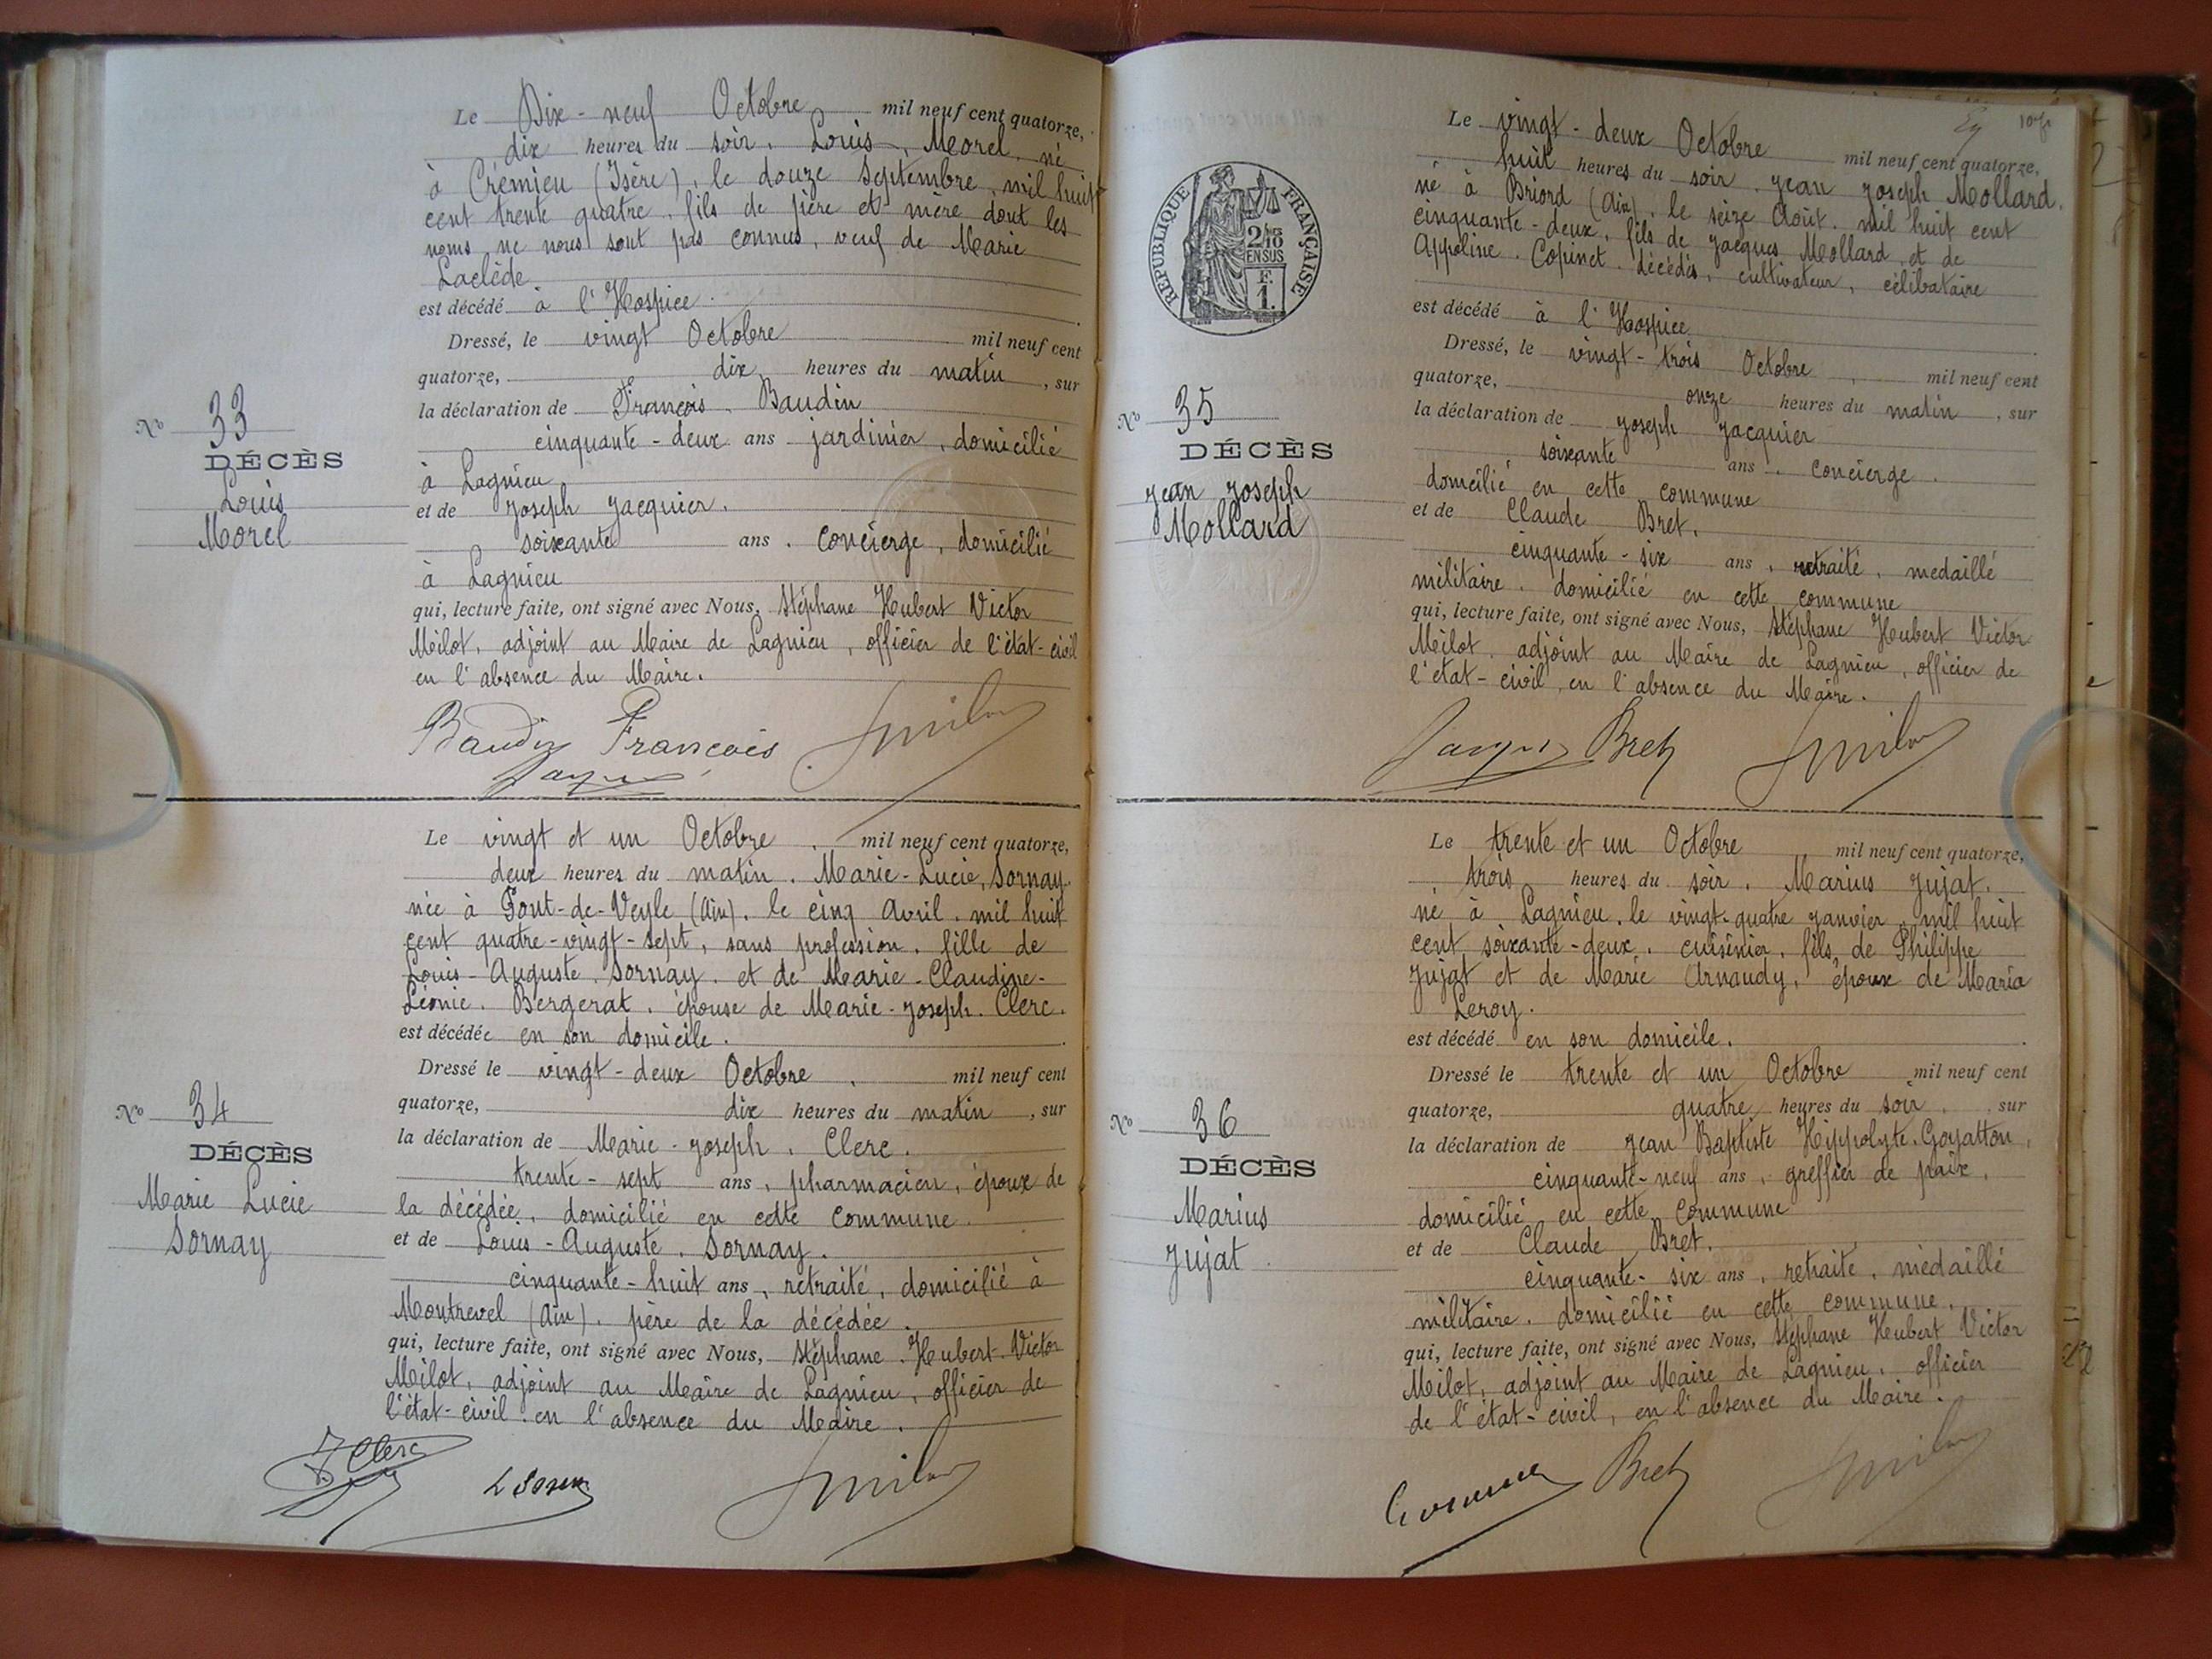 Le Dix-neuf Octobre mil neuf cent quatorze,
dix heures du soir, Louis, Morel, né
à Crémieu (Isère), le douze Septembre, mil huit
cent trente quatre, fils de père et mère dont les
noms ne nous sont pas connus, veuf de Marie
Laclède
est décédé à l'Hospice.
Dressé, le vingt Octobre mil neuf cent
quatorze, dix heures du matin, sur
la déclaration de François, Baudin
cinquante-deux ans jardinier, domicilié
à Lagnieu
et de Joseph Jacquier.
soixante ans, concierge, domicilié
à Lagnieu
qui, lecture faite, ont signé avec Nous, Stéphane Hubert Victor
Milot, adjoint au Maire de Lagnieu, officier de l'état-civil
en l'absence du Maire.
Baudin François
No 33
DÉCÈS
Louis
Morel
Le vingt et un Octobre, mil neuf cent quatorze,
deux heures du matin. Marie-Lucie, Sornay.
née à Pont-de-Veyle (Ain), le cinq Avril, mil huit
cent quatre-vingt-sept, sans profession, fille de
Louis-Auguste, Sornay, et de Marie-Claudine-
Léonie, Bergerat, épouse de Marie-Joseph. Clerc.
est décédée en son domicile.
Dressé le vingt-deux Octobre, mil neuf cent
quatorze, dix heures du matin, sur
la déclaration de Marie-Joseph, Clerc.
trente-sept ans, pharmacien, époux de
la décédée, domicilié en cette commune
et de Louis-Auguste, Sornay.
cinquante-huit ans, retraité, domicilié à
Montrevel (Ain), père de la décédée.
qui, lecture faite, ont signé avec Nous, Stéphane Hubert Victor
Milot, adjoint au Maire de Lagnieu, officier de
l'état-civil en l'absence du Maire.
J Clerc
No 34
DÉCÈS
Marie Lucie
Sornay
Le vingt-deux Octobre mil neuf cent quatorze,
huit heures du soir, Jean Joseph Mollard,
né à Briord (Ain), le seize Août, mil huit cent
cinquante-deux, fils de Jacques Mollard, et de
Appoline Copinet décédés, cultivateur, célibataire
est décédé à l'Hospice
Dressé, le vingt-trois Octobre, mil neuf cent
quatorze, onze heures du matin, sur
la déclaration de Joseph Jacquier
soixante ans, concierge.
domicilié en cette commune
et de Claude Bret.
cinquante-six ans, retraité, medaillé
militaire, domicilié en cette commune
qui, lecture faite, ont signé avec Nous, Stéphane Hubert Victor
Milot, adjoint au Maire de Lagnieu, officier de
l'état-civil, en l'absence du Maire.
Bret
RÉPUBLIQUE FRANÇAISE
2/10
EN SUS
F.
1.
No 35
DÉCÈS
Jean Joseph
Mollard
Le trente et un Octobre mil neuf cent quatorze,
trois heures du soir, Marius Jujat.
né à Lagnieu, le vingt-quatre Janvier, mil huit
cent soixante-deux, cuisinier, fils de Philippe
Jujat et de Marie Arnaudy, époux de Maria
Leroy.
est décédé en son domicile.
Dressé le trente et un Octobre mil neuf cent
quatorze, quatre heures du soir, sur
la déclaration de Jean Baptiste Hippolyte Goyatton,
cinquante-neuf ans, greffier de paix,
domicilié en cette Commune
et de Claude Bret.
cinquante-six ans, retraité, médaillé
militaire, domicilié en cette commune.
qui, lecture faite, ont signé avec Nous, Stéphane Hubert Victor
Milot, adjoint au Maire de Lagnieu, officier
de l'état-civil, en l'absence du Maire.
Bret
No 36
DÉCÈS
Marius
Jujat